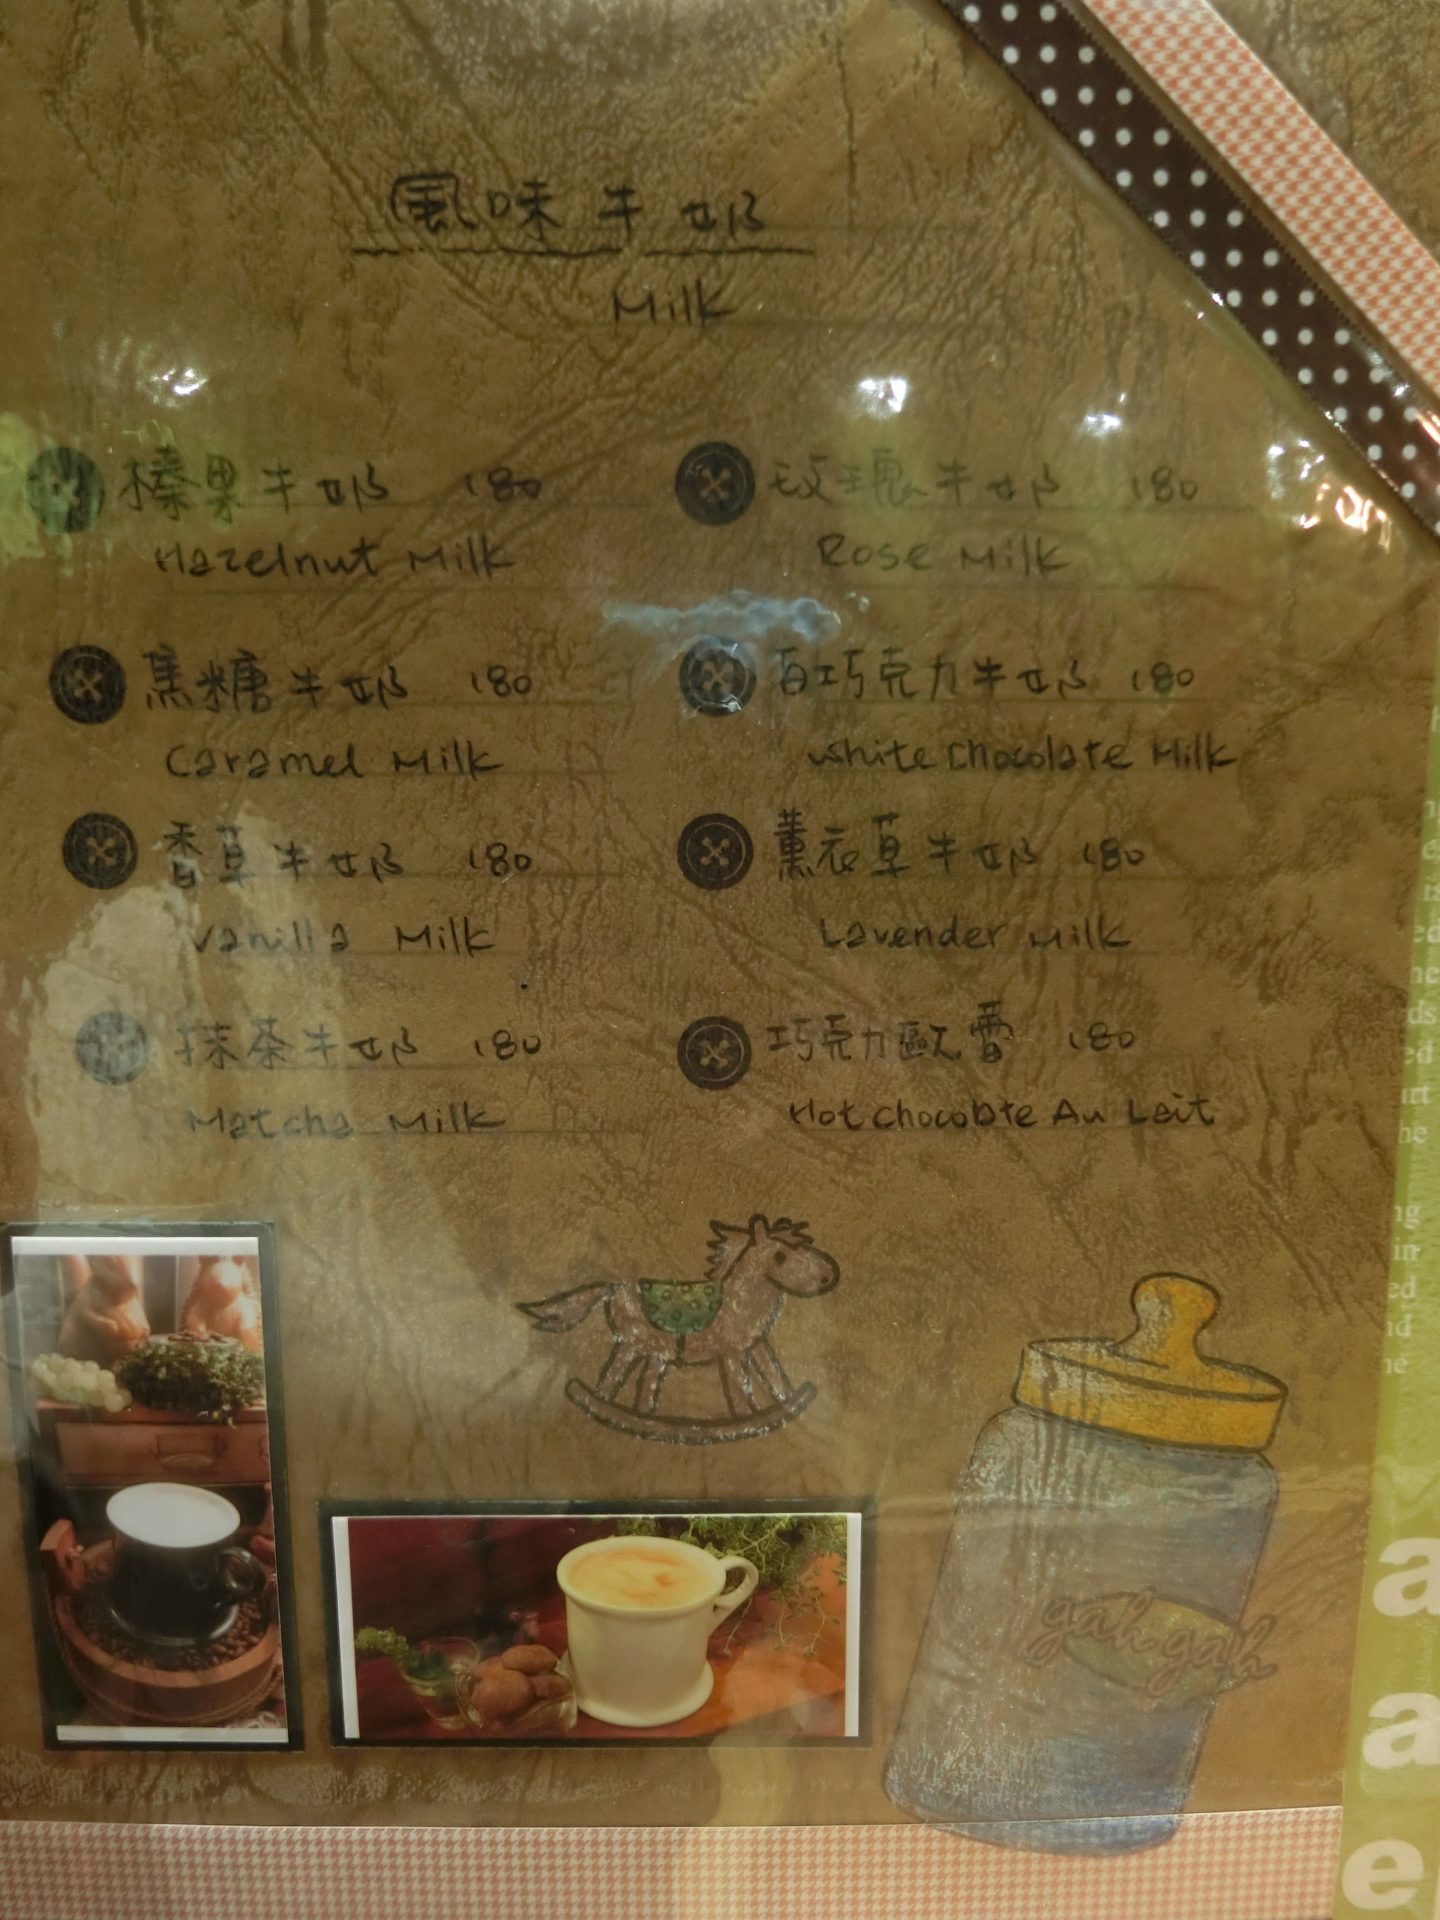 風味牛奶
Milk
榛果牛奶 180
Hazelnut Milk
焦糖牛奶 180
Caramel Milk
香草牛奶 180
Vanilla Milk
抹茶牛奶 180
Matcha Milk
玫瑰牛奶 180
Rose Milk
白巧克力牛奶 180
White Chocolate Milk
薰衣草牛奶 180
Lavender Milk
巧克力歐蕾 180
Hot Chocolate Au Lait
gah gah
a
a
e